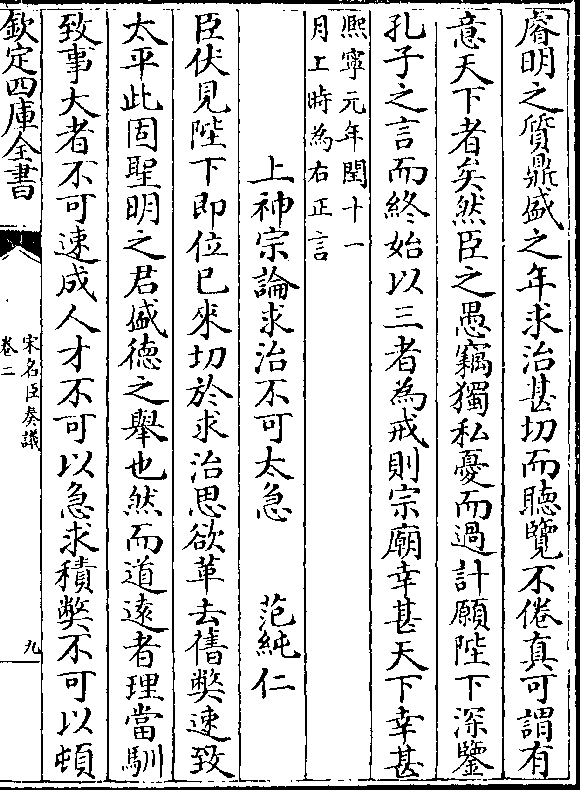 睿明之質鼎盛之年求治甚切而聽覽不倦真可謂有
意天下者矣然臣之愚竊獨私憂而過計願陛下深鑒
孔子之言而終始以三者為戒則宗廟幸甚天下幸甚
熈寧元年閏十一
月上時為右正言
上神宗論求治不可太急 范純仁
臣伏見陛下即位已來切於求治思欲革去舊弊速致
太平此固聖明之君盛德之舉也然而道遠者理當馴
致事大者不可速成人才不可以急求積弊不可以頓
欽定四庫全書
宋名臣奏議
卷二
九